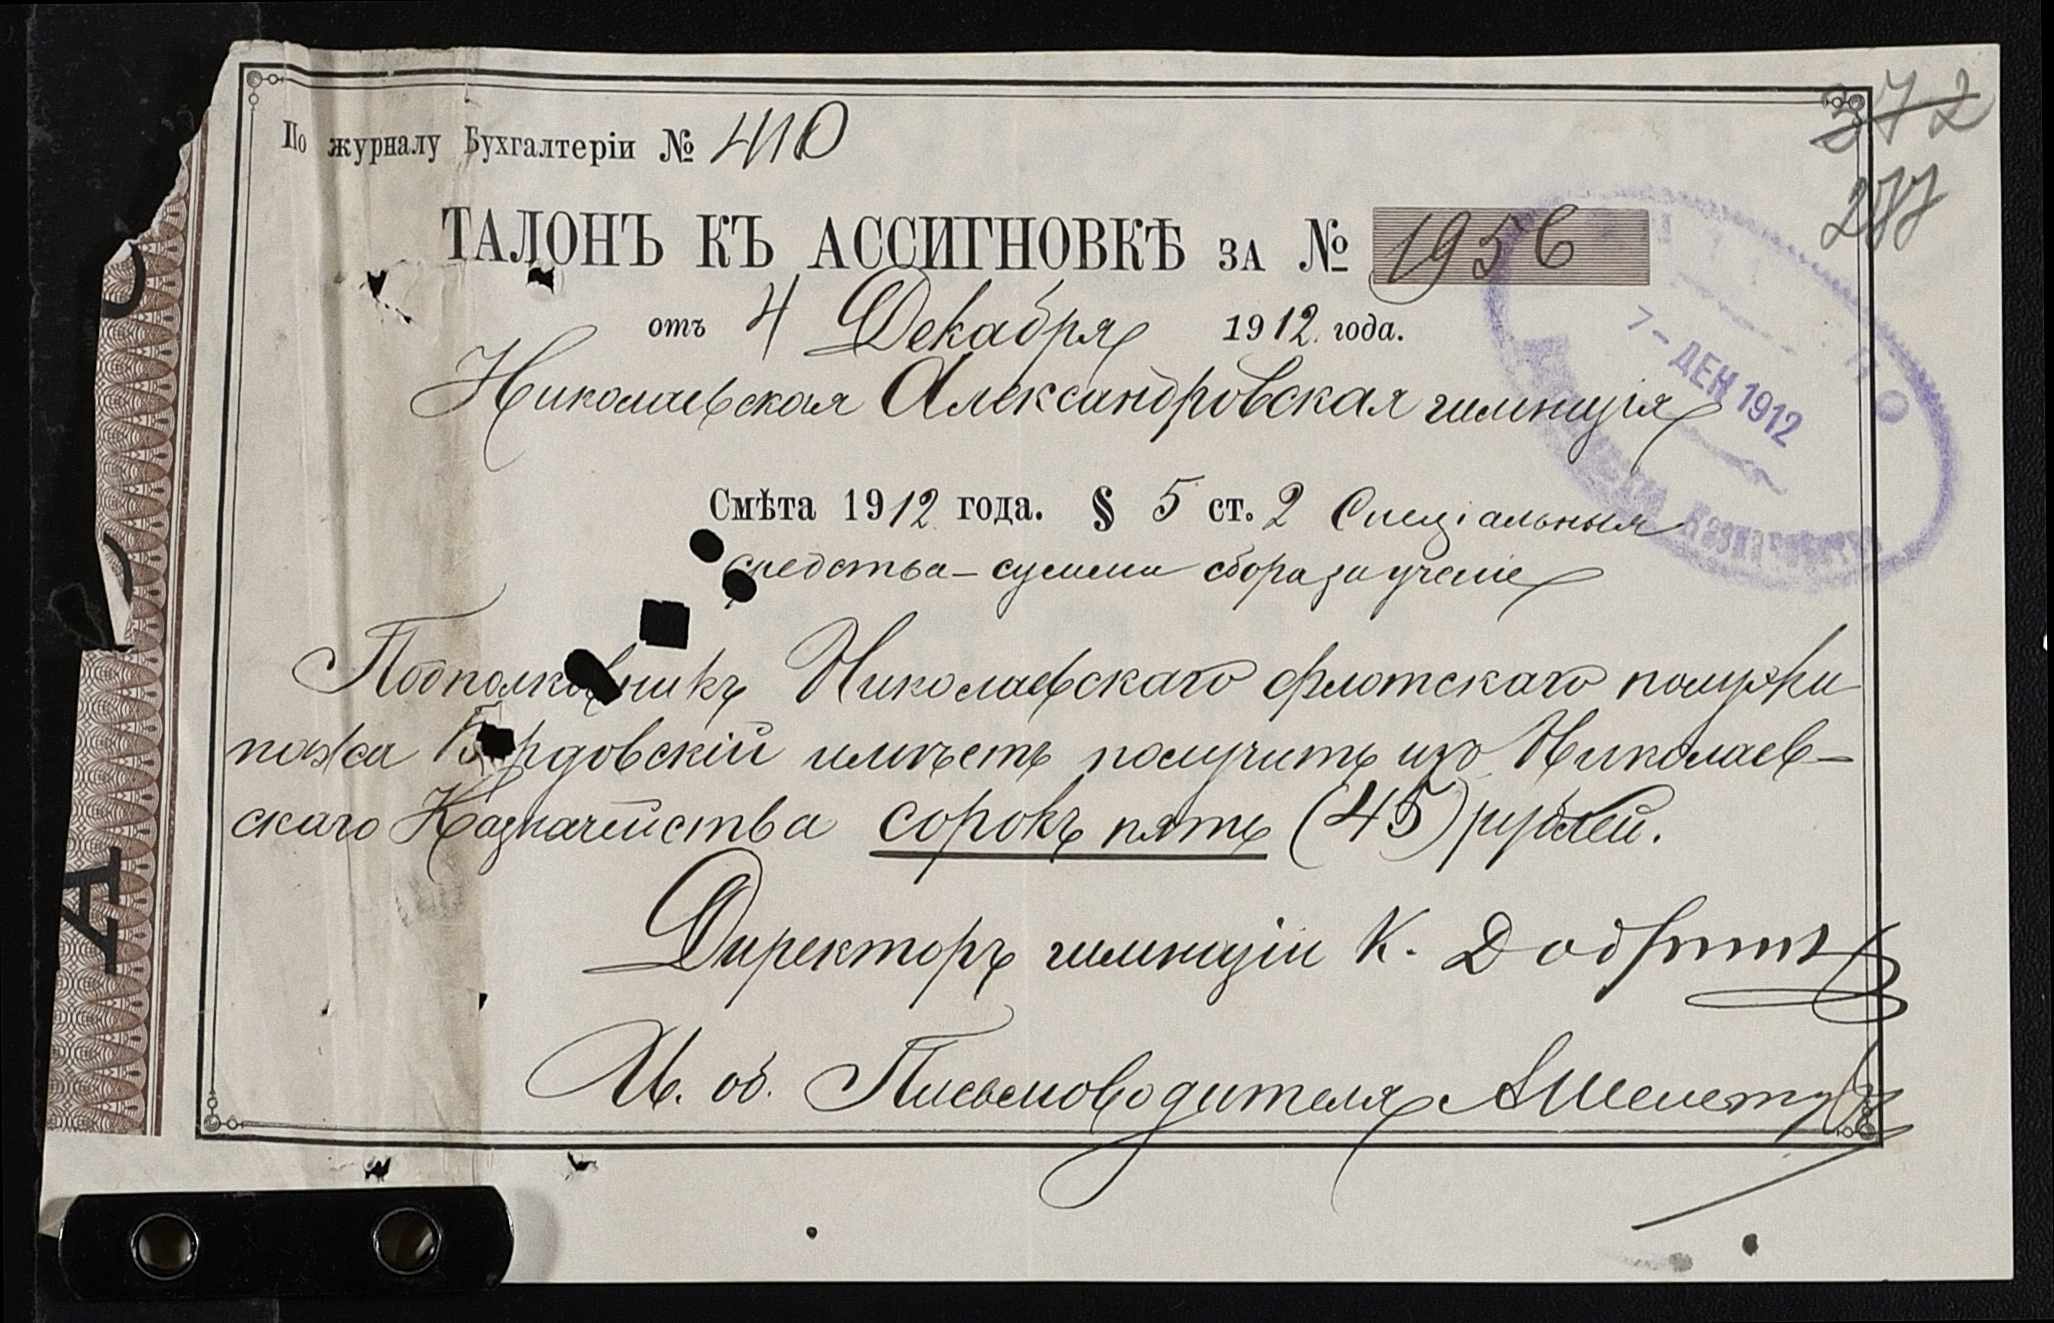 372
277
По журналу Бухгалтеріи № 410
ТАЛОНЪ КЪ АССИГНОВКѢ ЗА № 1956
отъ 4 Декабря 1912 года.
Николаевская Александровская гимназія
7 - ДЕК 1912
Казначейство
Смѣта 1912 года. § 5 ст. 2 Спеціальныя
средства - суммы сбора за ученіе
Подполковникъ Николаевскаго флотскаго полуэки
пажа Бордовскій имѣетъ получить изъ Николаев-
скаго Казначейства сорокъ пять (45) рублей.
Директоръ гимназіи К. Добр
И. об. Письмоводителя А Шелест